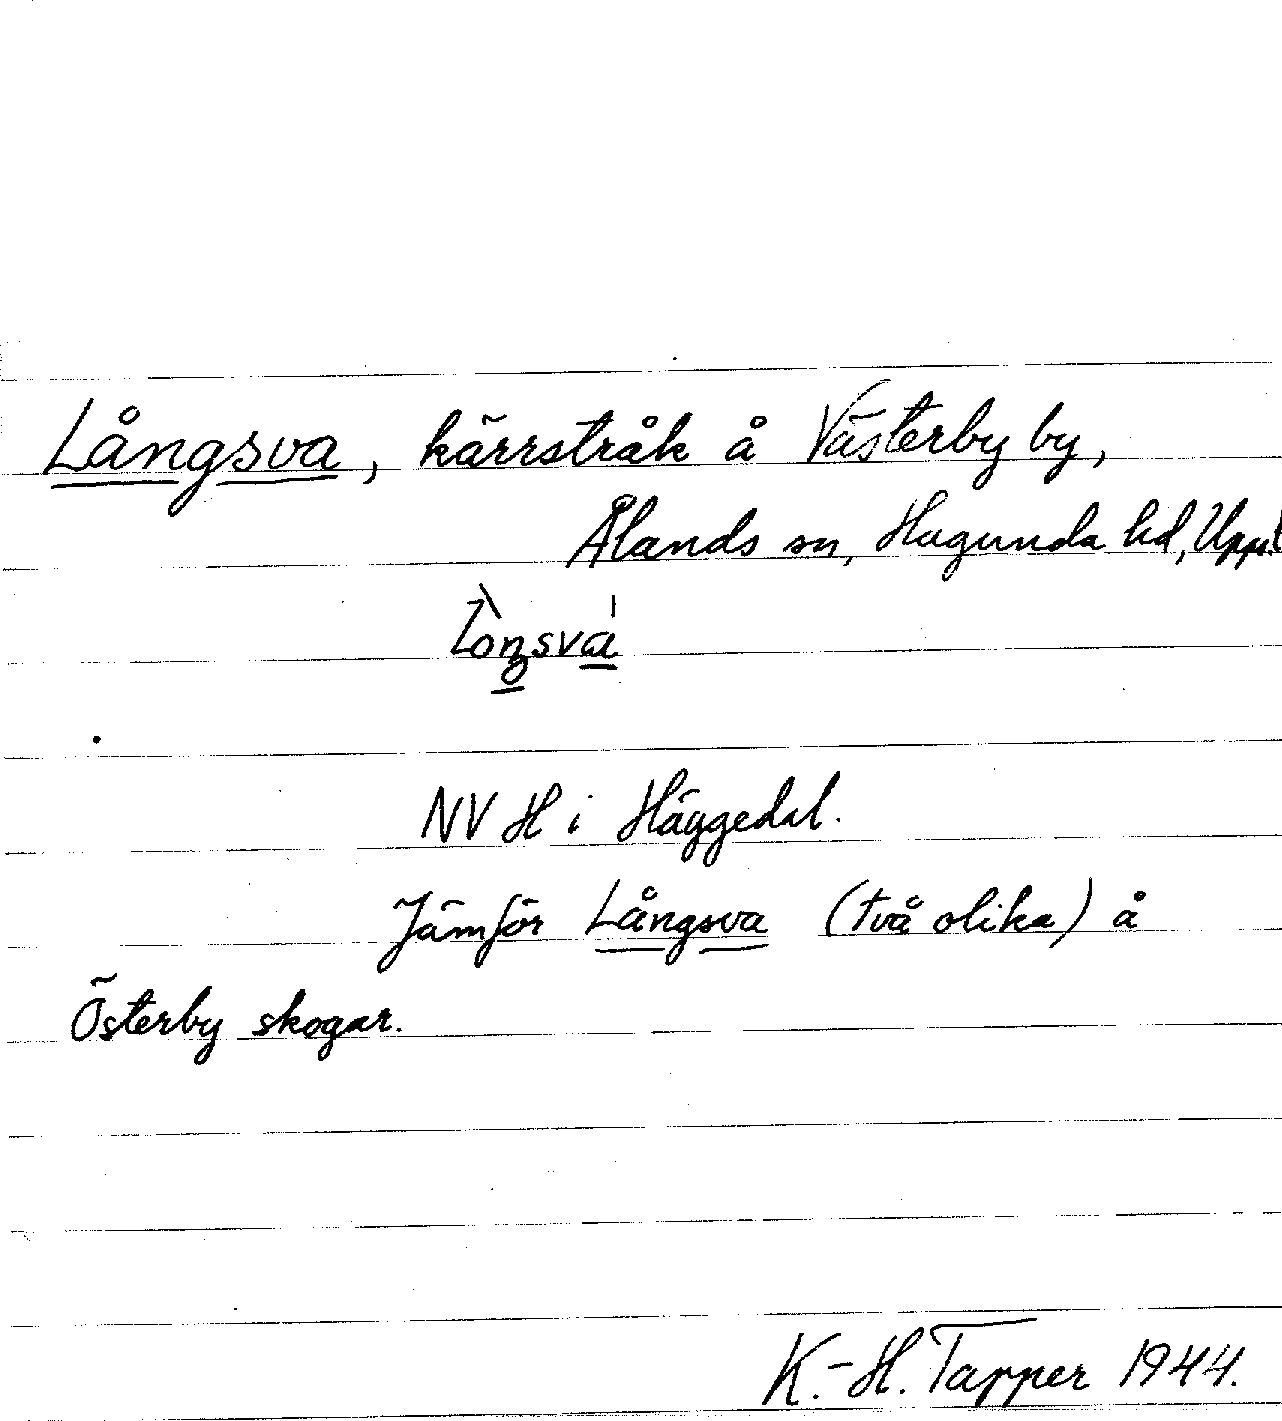 Långsva, kärrstråk å Västerby by,
Ålands sn, Hagunda hd, Uppl.
NV H i Häggedal.
Jämför Långsva (två olika) å
Österby skogar.
K.-H. Tapper 1944.